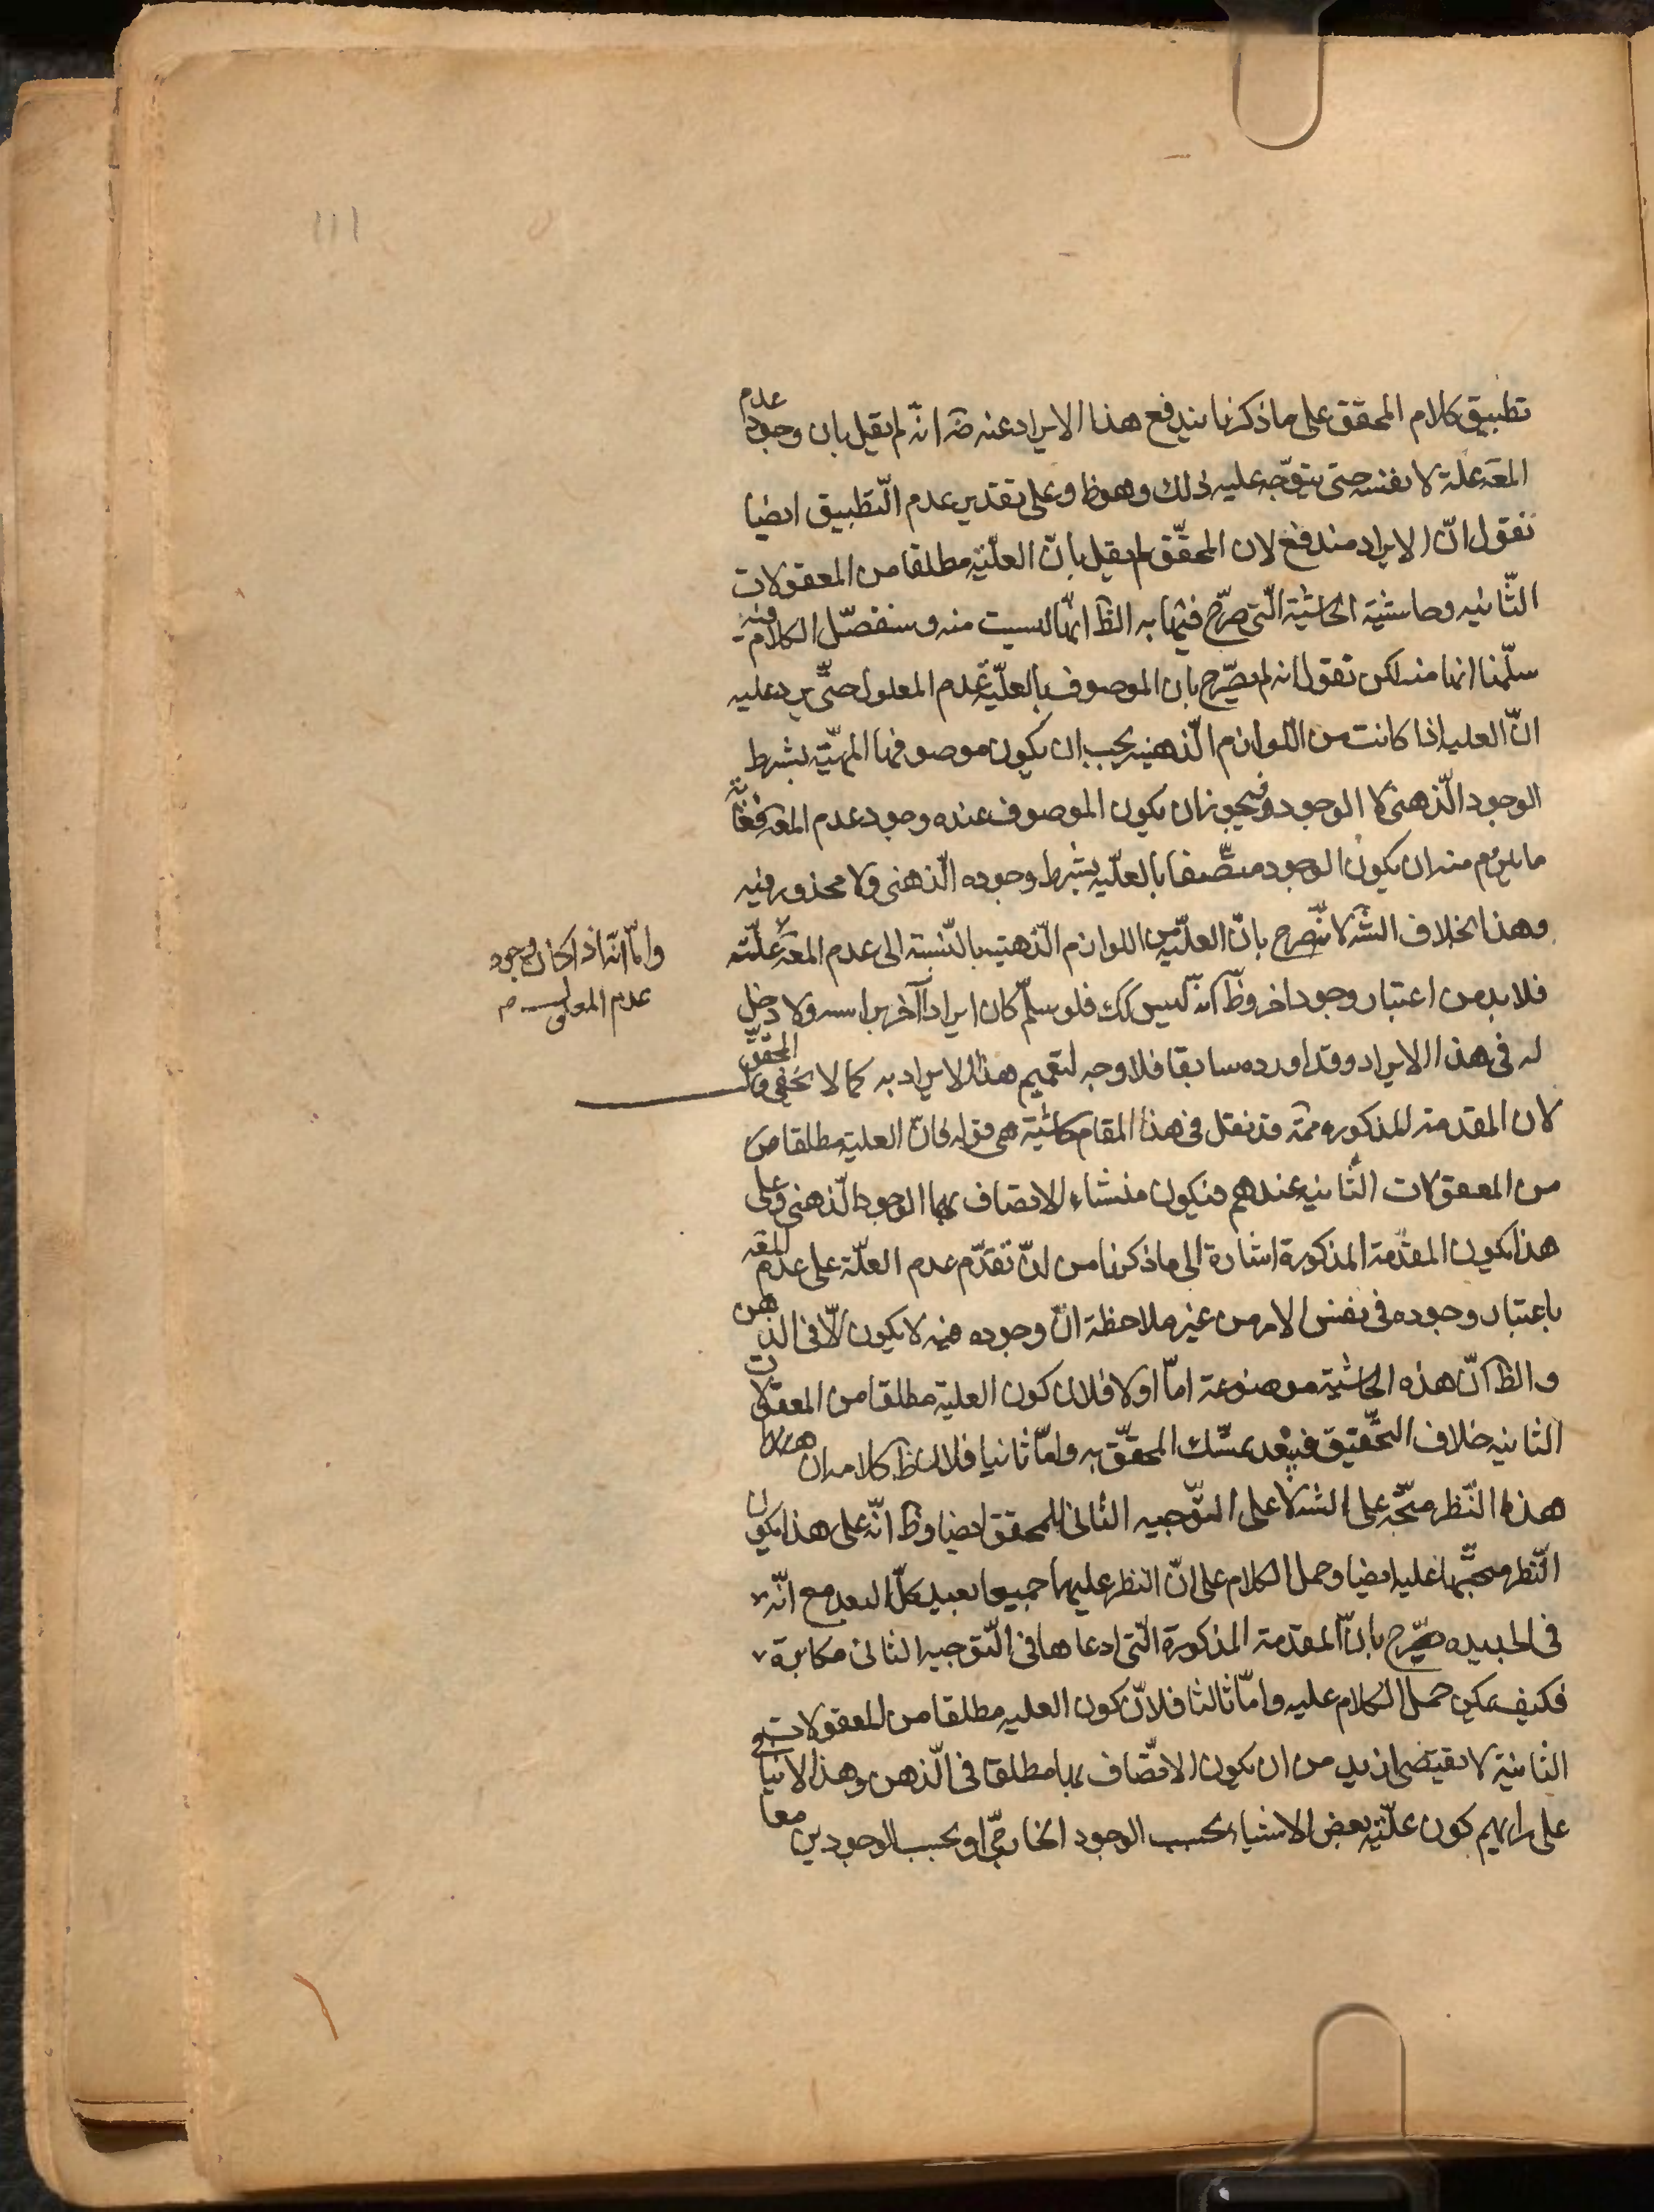 تطبيق كلام المحقق على ما ذكرنا يندفع هذا الايراد عنه ضه انه لم يقل بان وجود عدم
المعه علة لا نفسه حتى يتوجّه عليه ذلك وهو ظ وعلى تقدير عدم التّطبيق ايضا
نقول انّ الايراد مندفع لان المحقّق لم يقل بانّ العلّيّة مطلقا من المعقولات
الثّانيه وحاشية الحاشية الّتى صرّح فيها به الظ انّها ليست منه وسنفصّل الكلام فيه
سلّمنا انها منه لكن نقول انه لم يصّرح بان الموصوف بالعلّيّة عدم المعلول حتّى يرد عليه
انّ العليه اذا كانت من اللّوازم الّذهنيه يجب ان يكون موصوفها المهيّة بشرط
الوجود الّذهنى لا الوجود فيجوز ان يكون الموصوف عنده وجود عدم المعه فغاية
ما يلزم منه ان يكون الوجود متّصفا بالعلّيه بشرط وجوده الّذهنى ولا محذور فيه
وهذا بخلاف الشّه لانّه صرح بانّ العلّيّه من اللوازم الّذهنيه بالنّسبة الى عدم المعه لا علّته
فلا بد من اعتبار وجود اخر وظ انّه ليس كك فلو سلّم كان ايرادا آخر براسه ولا دخل
له فى هذا الايراد وقد اورده سابقا فلا وجه لتعميم هذا الايراد به كما لا يخفى قال المحقق
واما انّه اذا كان وجود
عدم المعلول م
لان المقدمة المذكوره ممّه قد نقل فى هذا المقام حاشية هى قوله فانّ العلية مطلقا من
من المعقولات الثّانيه عندهم فيكون منشاء الاتصاف بها الوجود الّذهنى وعلى
هذا يكون المقدّمة المذكورة اشارة الى ما ذكرنا من انّ تقدّم عدم العلّة على عدم المعه
باعتبار وجوده فى نفس الامر من غير ملاحظة انّ وجوده فيه لا يكون الّا فى الذهن
والظ انّ هذه الحاشية موضوعة امّا اولا فلان كون العلية مطلقا من المعقولات
الثانيه خلاف التّحقيق فيبعد تمسّك المحقّق به وامّا ثانيا فلان ظ كلامه ان
هذا النّظر متّجه على الشه لا على التّوجيه الثانى للمحقق ايضا وظ انّه على هذا يكون
النّظر متّجها عليه ايضا وحمل الكلام على انّ النظر عليهما جميعا بعيد كلّ البعد مع انّه
فى الجديده صّرح بانّ المقدمة المذكورة الّتى ادعاها فى التّوجيه الثانى مكابرة
فكيف يمكن حمل الكلام عليه وامّا ثالثا فلانّ كون العليه مطلقا من المعقولات
الثانية لا يقتضى ازيد من ان يكون الاتّصاف بها مطلقا فى الّذهن وهذا لا ينافى
على رايهم كون علّيّة بعض الاشياء بحسب الوجود الخارجّى او بحسب الوجودين معا